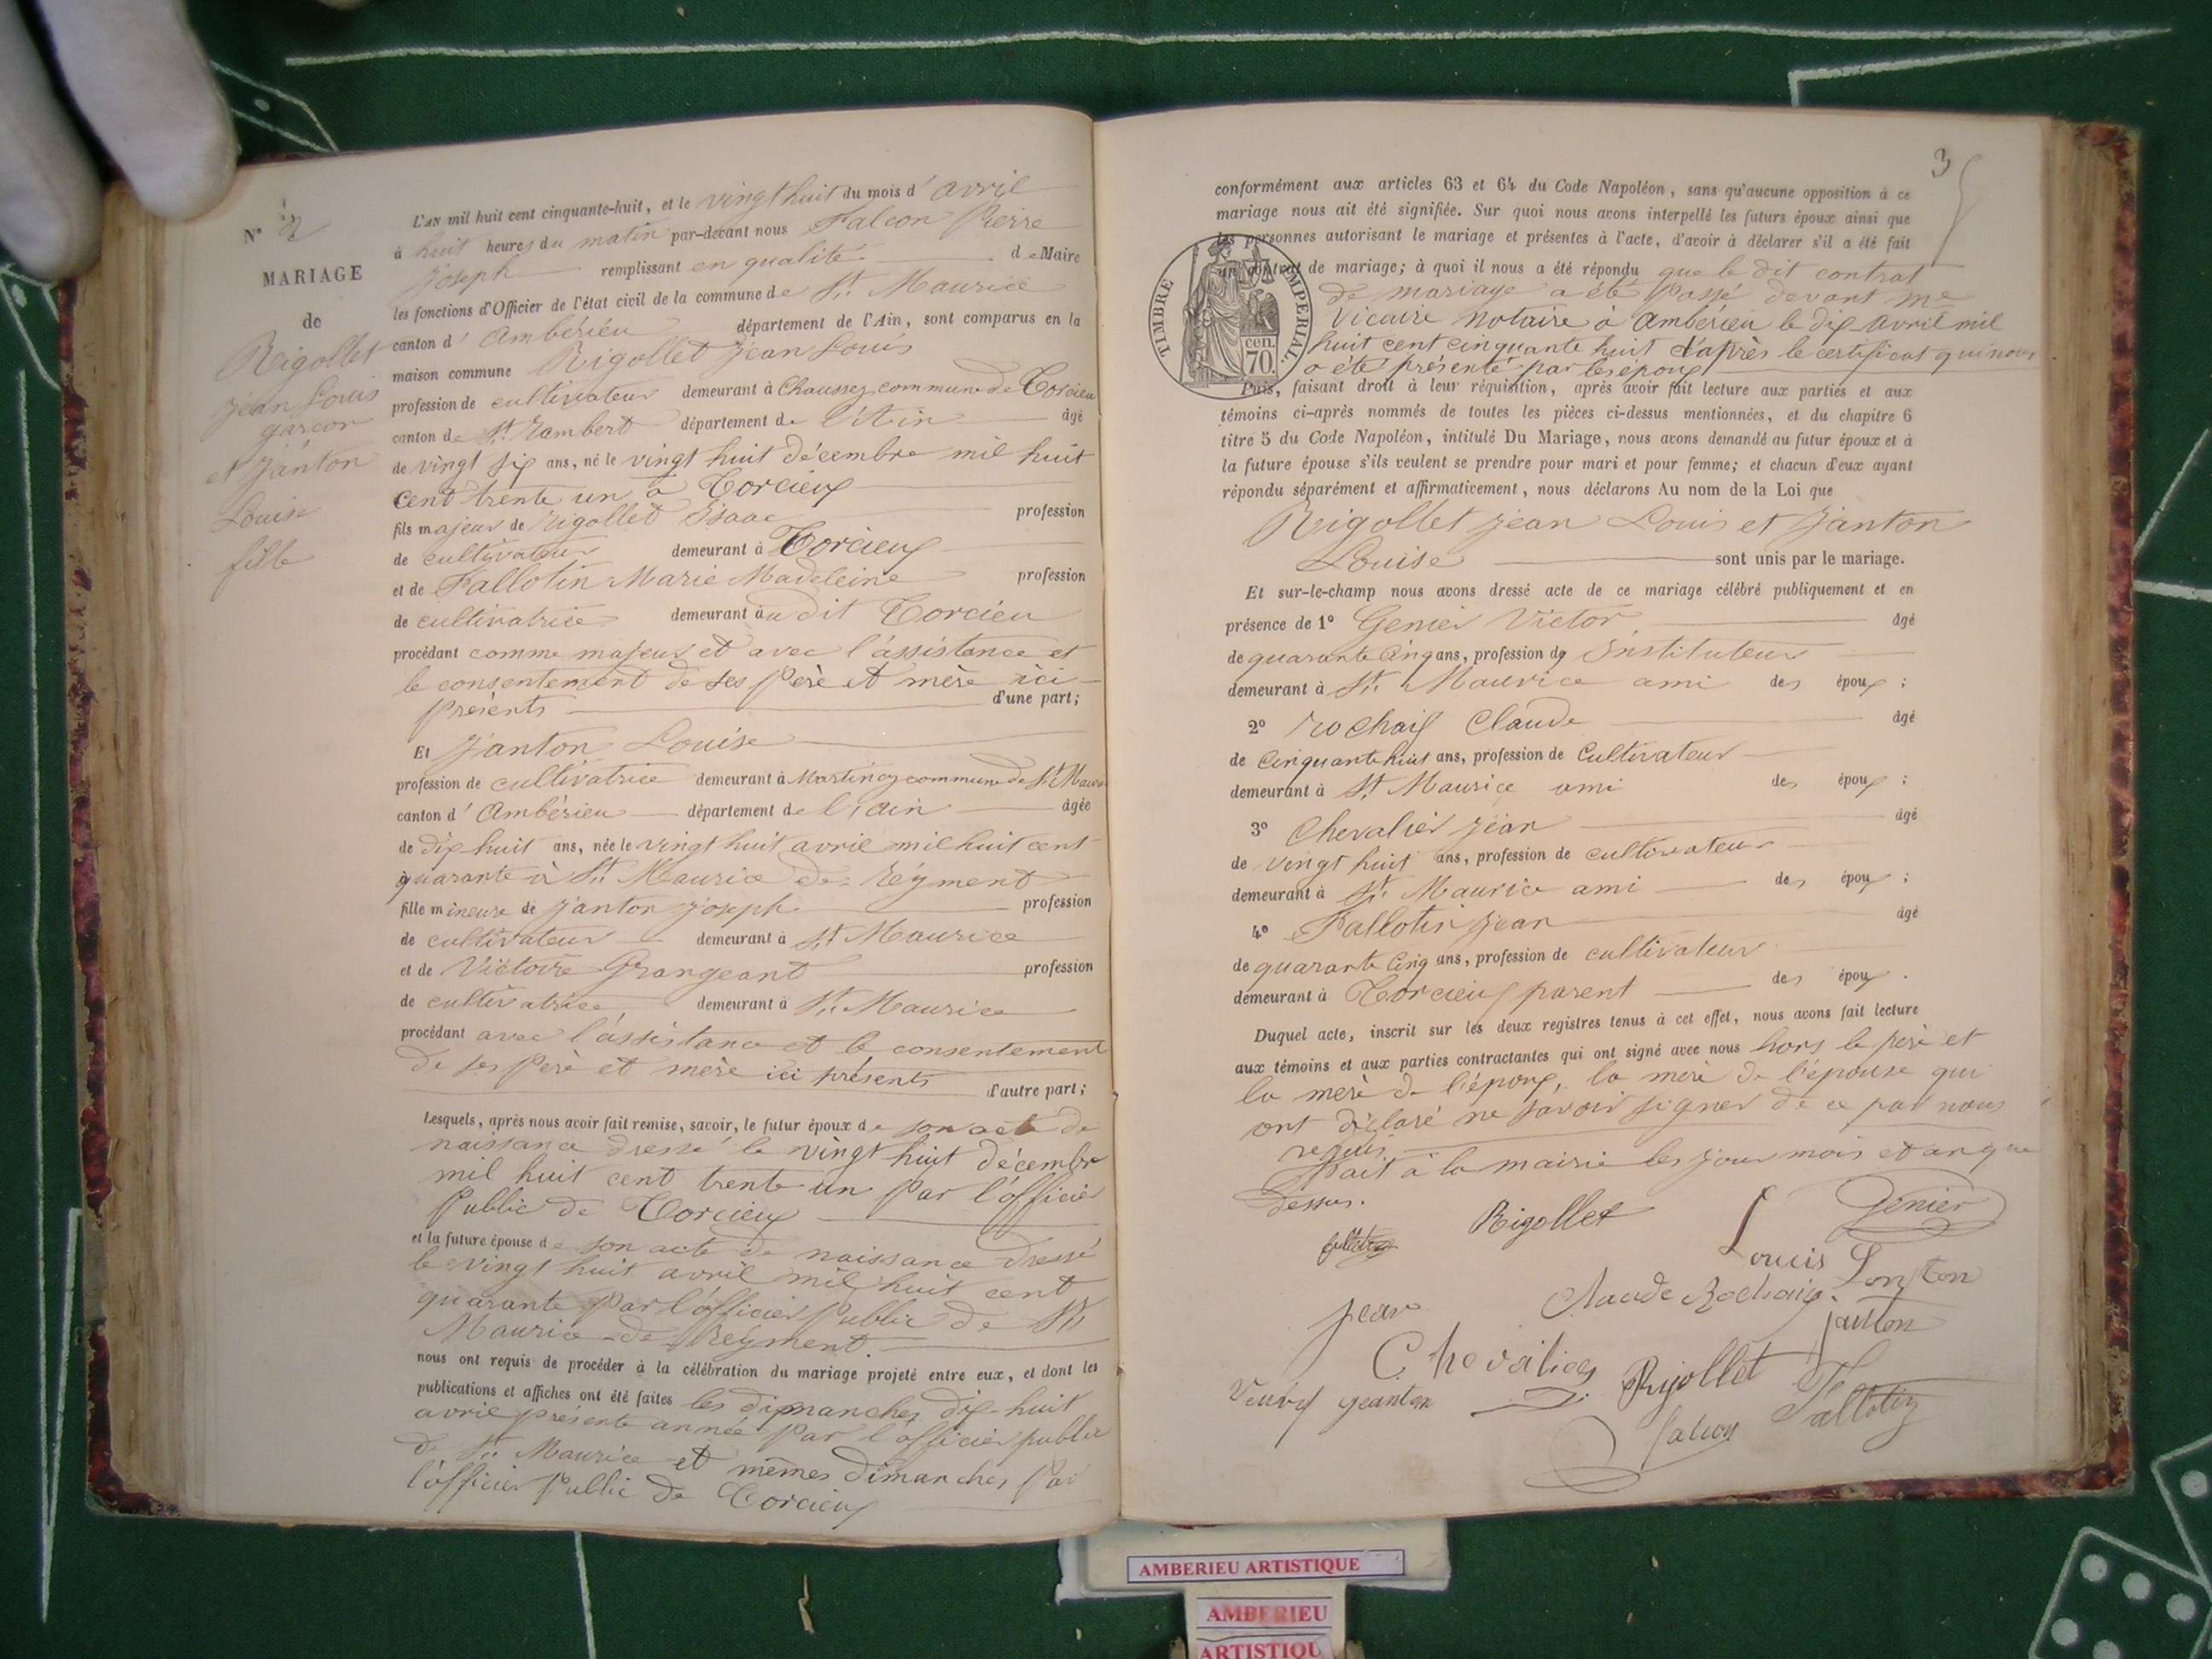 N° 2
MARIAGE
de
Rigollet
Jean Louis
garçon
et Janton
Louise
fille
L'AN mil huit cent cinquante-huit, et le vingt huit du mois d'avril
à huit heures du matin par-devant nous Falcon Pierre
Joseph remplissant en qualité de Maire
les fonctions d'Officier de l'état civil de la commune de St. Maurice
canton d'Ambérieu département de l'Ain, sont comparus en la
maison commune Rigollet Jean Louis
profession de cultivateur demeurant à Chaussey commune de Torcieu
canton de St. Rambert département de l'Ain âgé
de vingt six ans, né le vingt huit décembre mil huit
cent trente un à Torcieux
fils majeur de Rigollet Isaac profession
de cultivateur demeurant à Torcieux
et de Fallotin Marie Madeleine profession
de cultivatrice demeurant au dit Torcieu
procédant comme majeur et avec l'assistance et
le consentement de ses père et mère ici
présents d'une part;
Et Janton Louise
profession de cultivatrice demeurant à Martinaz commune de St Mauri
canton d'Ambérieu département de l'ain âgée
de dix huit ans, née le vingt huit avril mil huit cent
quarante à St. Maurice de Réyment
fille mineure de Janton Joseph profession
de cultivateur demeurant à St Maurice
et de Victoire Grangeant profession
de cultivatrice demeurant à St. Maurice
procédant avec l'assistance et le consentement
de ses père et mère ici présents d'autre part;
Lesquels, après nous avoir fait remise, savoir, le futur époux de son acte de
naissance dressé le vingt huit décembre
mil huit cent trente un par l'officier
Public de Torcieux
et la future épouse de son acte de naissance dressé
le vingt huit avril mil huit cent
quarante par l'officier Public de St.
Maurice de Réyment.
nous ont requis de procéder à la célébration du mariage projeté entre eux, et dont les
publications et affiches ont été faites les dimanches dix-huit
avril présente année par l'officier public
de St. Maurice et mêmes dimanches par
l'officier Public de Torcieux
3
conformément aux articles 63 et 64 du Code Napoléon, sans qu'aucune opposition à ce
mariage nous ait été signifiée. Sur quoi nous avons interpellé les futurs époux ainsi que
les personnes autorisant le mariage et présentes à l'acte, d'avoir à déclarer s'il a été fait
un contrat de mariage; à quoi il nous a été répondu que le dit contrat
de mariage a été passé devant me
Vicaire notaire à Ambérieu le dix avril mil
huit cent cinquante huit d'après le certificat qui nous
a été présenté par les époux
TIMBRE IMPERIAL.
cen.
70.
Puis, faisant droit à leur réquisition, après avoir fait lecture aux parties et aux
témoins ci-après nommés de toutes les pièces ci-dessus mentionnées, et du chapitre 6
titre 5 du Code Napoléon, intitulé Du Mariage, nous avons demandé au futur époux et à
la future épouse s'ils veulent se prendre pour mari et pour femme; et chacun d'eux ayant
répondu séparément et affirmativement, nous déclarons Au nom de la Loi que
Rigollet Jean Louis et Janton
Louise sont unis par le mariage.
Et sur-le-champ nous avons dressé acte de ce mariage célébré publiquement et en
présence de 1° Genier Victor âgé
de quarante cinq ans, profession de Instituteur
demeurant à St. Maurice ami des époux;
2° Rochaix Claude âgé
de Cinquante huit ans, profession de Cultivateur
demeurant à St Maurice ami des époux;
3° Chevalier Jean âgé
de vingt huit ans, profession de cultivateur
demeurant à St. Maurice ami des époux;
4° Fallotin Jean âgé
de quarante cinq ans, profession de cultivateur
demeurant à Torcieux parent des époux.
Duquel acte, inscrit sur les deux registres tenus à cet effet, nous avons fait lecture
aux témoins et aux parties contractantes qui ont signé avec nous hors le père et
la mère de l'époux, la mère de l'épouse qui
ont déclaré ne savoir signer de ce par nous
requis.
Fait à la mairie les jour mois et an que
dessus.
Rigollet Genier
Louis Janton
Jean Claude Rochaix Janton
Chevalier Rigollet Fallotin
geanton
falcon
AMBERIEU ARTISTIQUE
AMBERIEU
ARTISTIQU